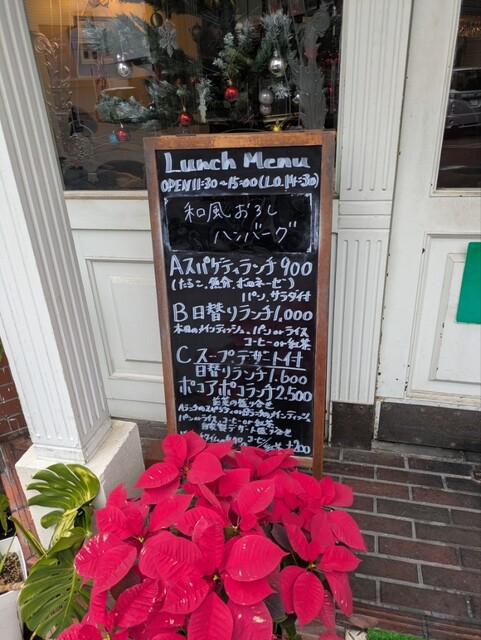 Lunch Menu
OPEN 11:30~15:00 (L.O. 14:30)
和風おろし
ハンバーグ
Aスパゲティランチ 900
(たらこ、魚介、ボロネーゼ)
パン、サラダ付
B日替りランチ1,000
本日のメインディッシュ、パンorライス
コーヒーor紅茶
C.スープ、デザート付
日替りランチ1,600
ポコアポコランチ2,500
前菜の盛合せ
パンorライス、コーヒーor紅茶
+200